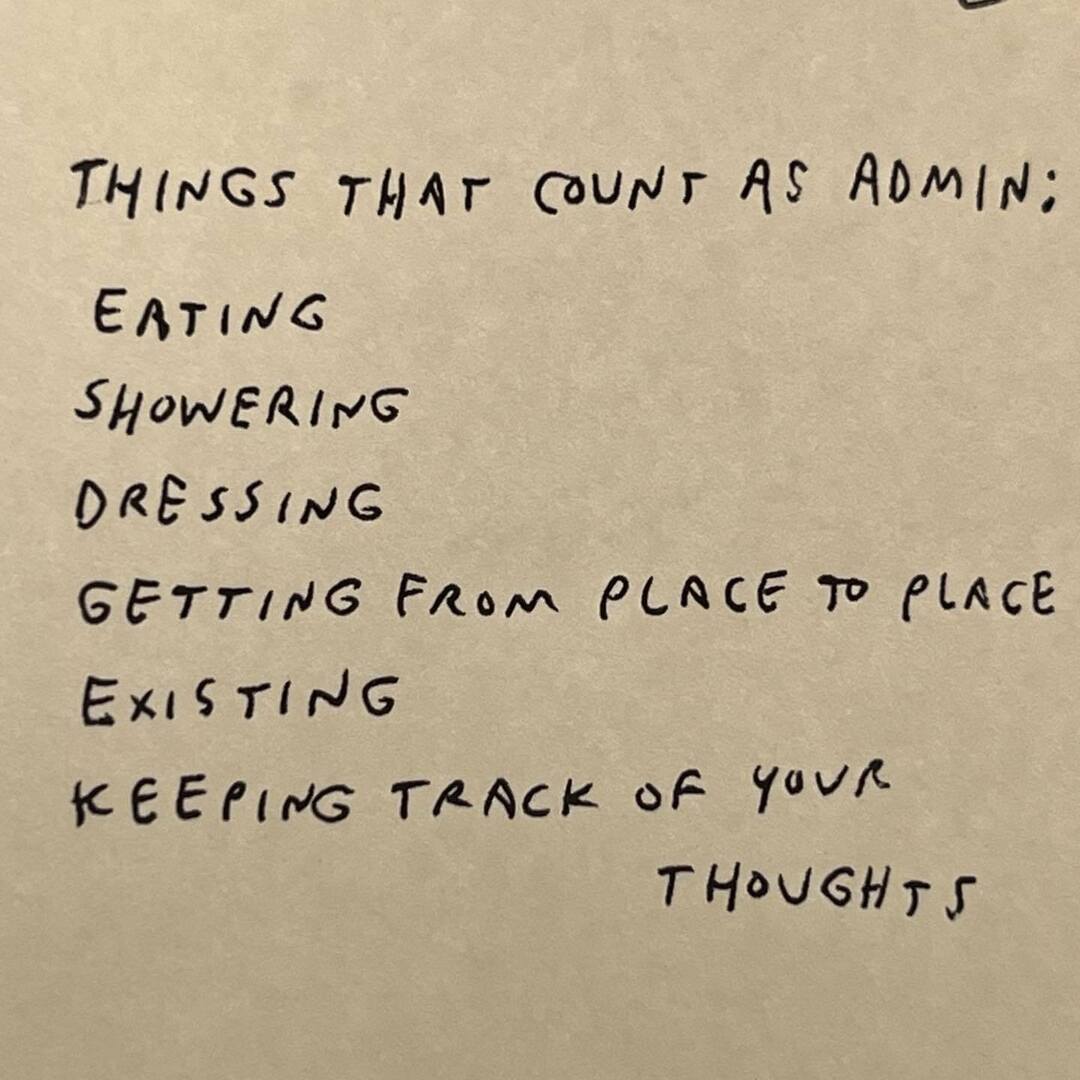 THINGS THAT COUNT AS ADMIN:
EATING
SHOWERING
DRESSING
GETTING FROM PLACE TO PLACE
EXISTING
KEEPING TRACK OF YOUR
THOUGHTS